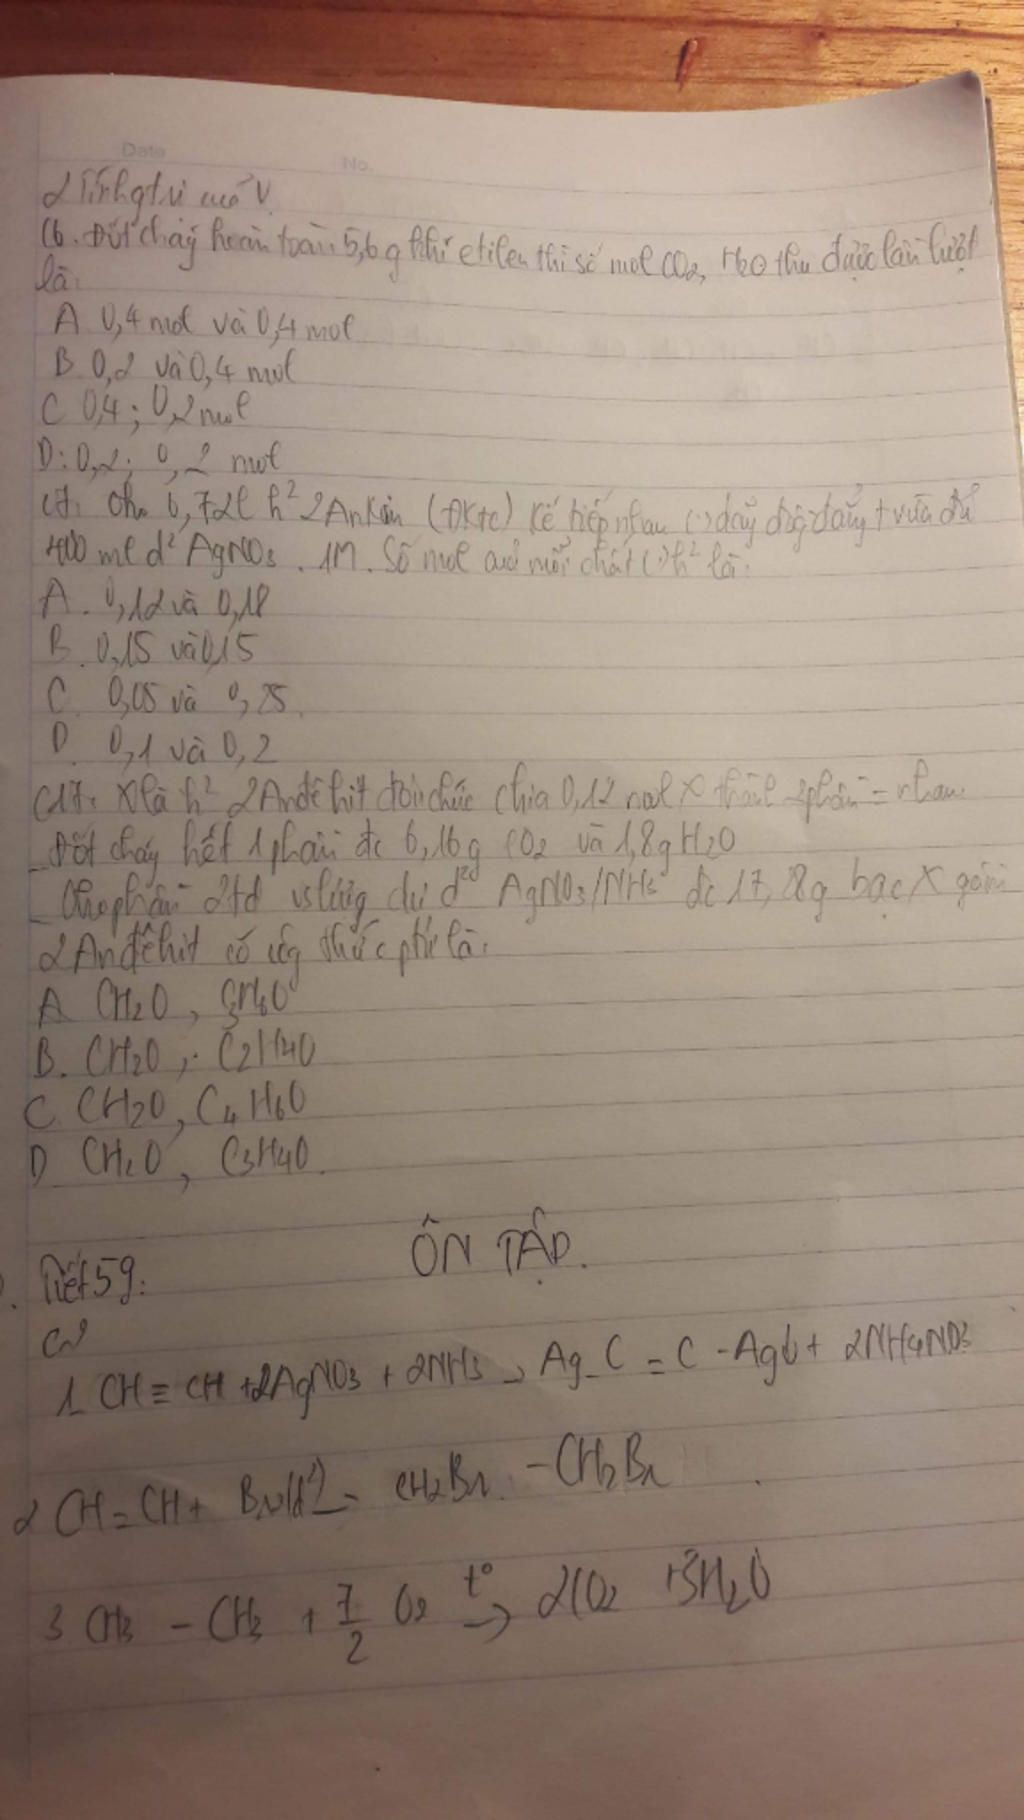 Date No.
2 Tính gtri của V
C6. Đốt cháy hoàn toàn 5,6 g khí etilen thì số mol CO2, H2O thu được lần lượt
là:
A 0,4 mol và 0,4 mol
B. 0,2 và 0,4 mol
C 0,4 ; 0,2 mol
D: 0,2 ; 0,2 mol
C7. Cho 6,72l h² 2 Ankin (đktc) kế tiếp nhau (.) dãy đồng đẳng + vừa đủ
400 ml d² AgNO3 . 1M. Số mol của mỗi chất (.) h² là:
A. 0,12 và 0,18
B. 0,15 và 0,15
C. 0,05 và 0,25.
D. 0,1 và 0,2
C17. X là h² 2 Anđêhit đơn chức chia 0,12 mol X thành 2 phần = nhau
- Đốt cháy hết 1 phần đc 6,16g CO2 và 1,8g H2O
- Cho phần 2 td vs lượng dư d² AgNO3/NH3 đc 17,28g bạc X gồm
2 Anđêhit có công thức ptử là:
A CH2O, C3H6O
B. CH2O, C2H4O
C. CH2O, C4H6O
D CH2O, C3H4O.
ÔN TẬP.
Tiết 59:
1. CH ≡ CH + 2AgNO3 + 2NH3 → Ag - C ≡ C - Ag↓ + 2NH4NO3
2 CH = CH + Br2(d²) → CH2Br - CH2Br
3 CH3 - CH3 + 7/2 O2 t° → 2CO2 + 3H2O